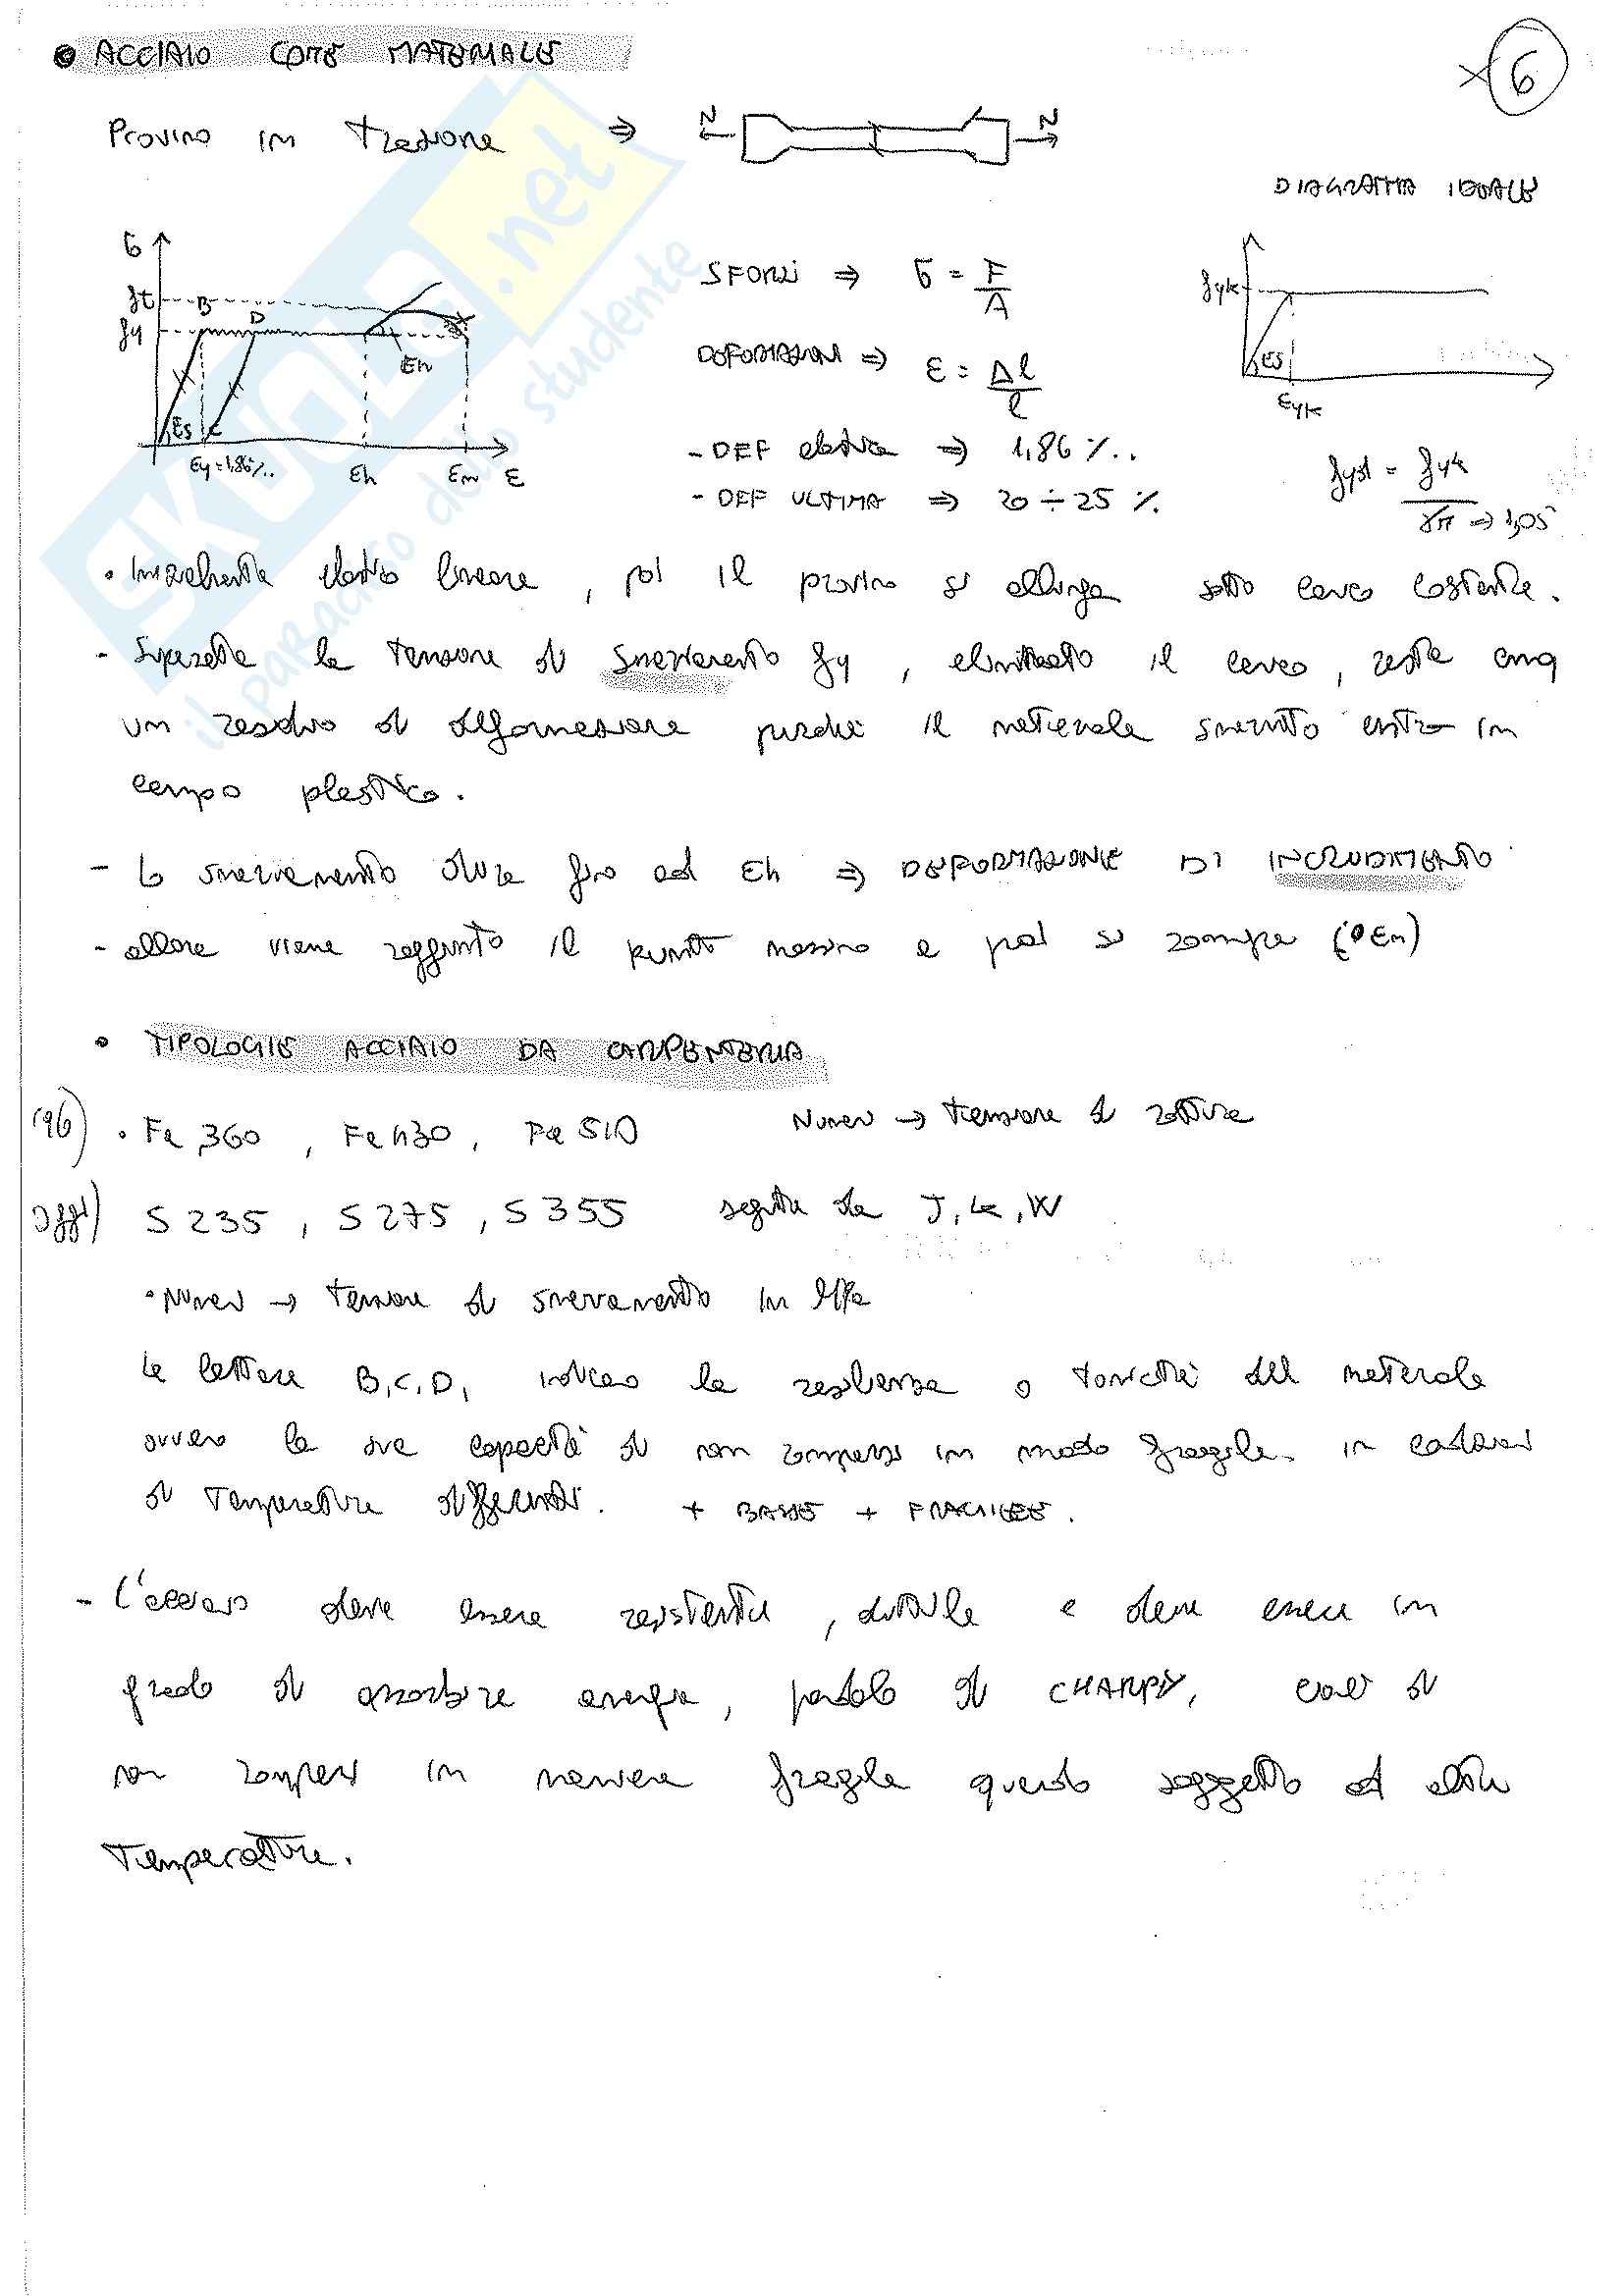 ACCIAIO COME MATERIALE
6
Provino in trazione ⇒ N N
DIAGRAMMA IDEALE
σ
ft
B
D
fy
Eh
Es C
εy = 1,86 %.. εh εm ε
SFORZI ⇒ σ = F/A
DEFORMAZIONI ⇒ ε = Δl/l
- DEF elastica ⇒ 1,86 %..
- DEF ULTIMA ⇒ 20 ÷ 25 %.
fyk
Es
εyk
fyd = fyk/γM ⇒ 1,05
• Inizialmente elastico lineare, poi il provino si allunga sotto carico costante.
- Superata la tensione di snervamento fy, eliminato il carico, resta cmq
un residuo di deformazione perché il materiale snervato entra in
campo plastico.
- Lo snervamento dura fino ad εh ⇒ DEFORMAZIONE DI INCRUDIMENTO
- allora viene raggiunto il punto massimo e poi si rompe ( εm)
• TIPOLOGIE ACCIAIO DA CARPENTERIA
('96) • Fe 360, Fe 430, Fe 510 Numeri → tensione di rottura
oggi) S 235, S 275, S 355 seguita da J, K, W
• Numeri → tensione di snervamento in MPa
Le lettere B, C, D, indicano la resilienza o tenacità del materiale
ovvero la sua capacità di non rompersi in modo fragile in condizioni
di temperatura differenti. + BASSE + FRAGILE.
- L'acciaio deve essere resistente, duttile e deve essere in
grado di assorbire energia, pendolo di CHARPY, cioè di
non rompersi in maniera fragile quando soggetto ad alte
temperature.
SKUOLA.net
il paradiso dello studente